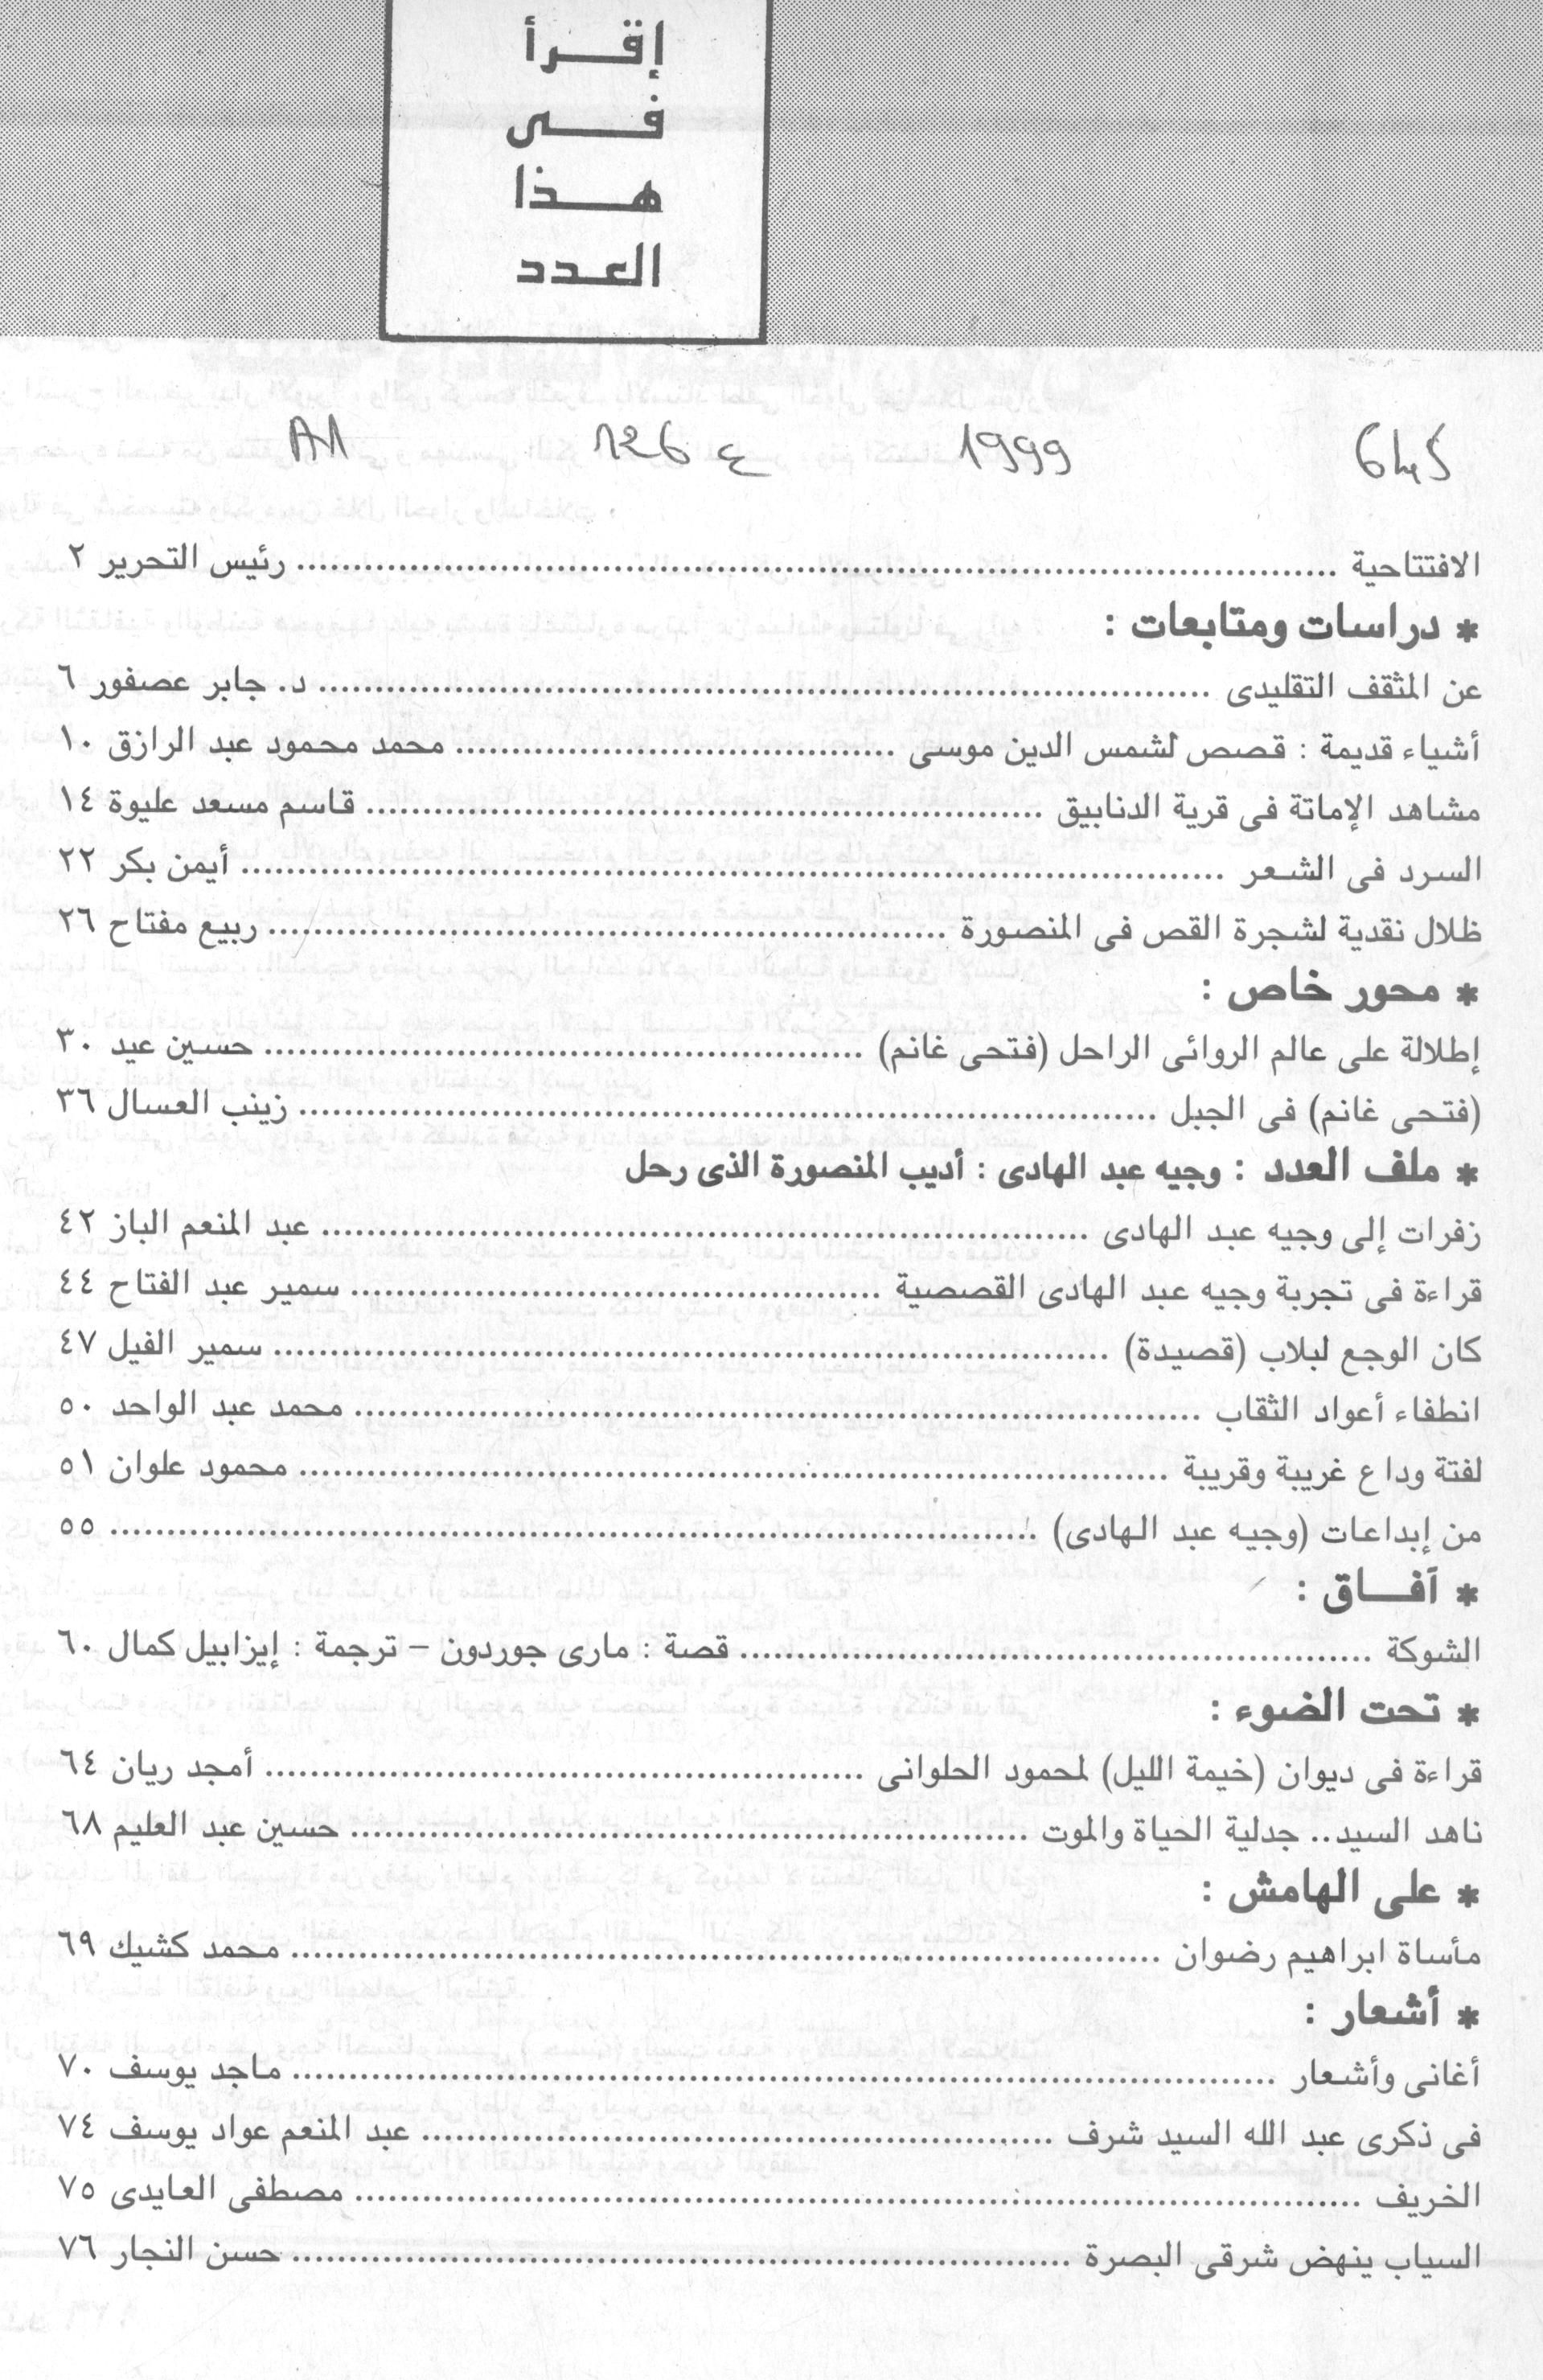 إقرأ
فى
هذا
العدد
645 1999 126 ع A1
الافتتاحية ........ رئيس التحرير ٢
* دراسات ومتابعات :
عن المثقف التقليدى ........ د. جابر عصفور ٦
أشياء قديمة : قصص لشمس الدين موسى ........ محمد محمود عبد الرازق ١٠
مشاهد الإماتة فى قرية الدنابيق ........ قاسم مسعد عليوة ١٤
السرد فى الشعر ........ أيمن بكر ٢٢
ظلال نقدية لشجرة القص فى المنصورة ........ ربيع مفتاح ٢٦
* محور خاص :
إطلالة على عالم الروائى الراحل (فتحى غانم) ........ حسين عيد ٣٠
(فتحى غانم) فى الجبل ........ زينب العسال ٣٦
* ملف العدد : وجيه عبد الهادى : أديب المنصورة الذى رحل
زفرات إلى وجيه عبد الهادى ........ عبد المنعم الباز ٤٢
قراءة فى تجربة وجيه عبد الهادى القصصية ........ سمير عبد الفتاح ٤٤
كان الوجع لبلاب (قصيدة) ........ سمير الفيل ٤٧
انطفاء أعواد الثقاب ........ محمد عبد الواحد ٥٠
لفتة وداع غريبة وقريبة ........ محمود علوان ٥١
من إبداعات (وجيه عبد الهادى) ........ ٥٥
* آفاق :
الشوكة ........ قصة : مارى جوردون – ترجمة : إيزابيل كمال ٦٠
* تحت الضوء :
قراءة فى ديوان (خيمة الليل) لمحمود الحلوانى ........ أمجد ريان ٦٤
ناهد السيد.. جدلية الحياة والموت ........ حسين عبد العليم ٦٨
* على الهامش :
مأساة ابراهيم رضوان ........ محمد كشيك ٦٩
* أشعار :
أغانى وأشعار ........ ماجد يوسف ٧٠
فى ذكرى عبد الله السيد شرف ........ عبد المنعم عواد يوسف ٧٤
الخريف ........ مصطفى العايدى ٧٥
السياب ينهض شرقى البصرة ........ حسن النجار ٧٦